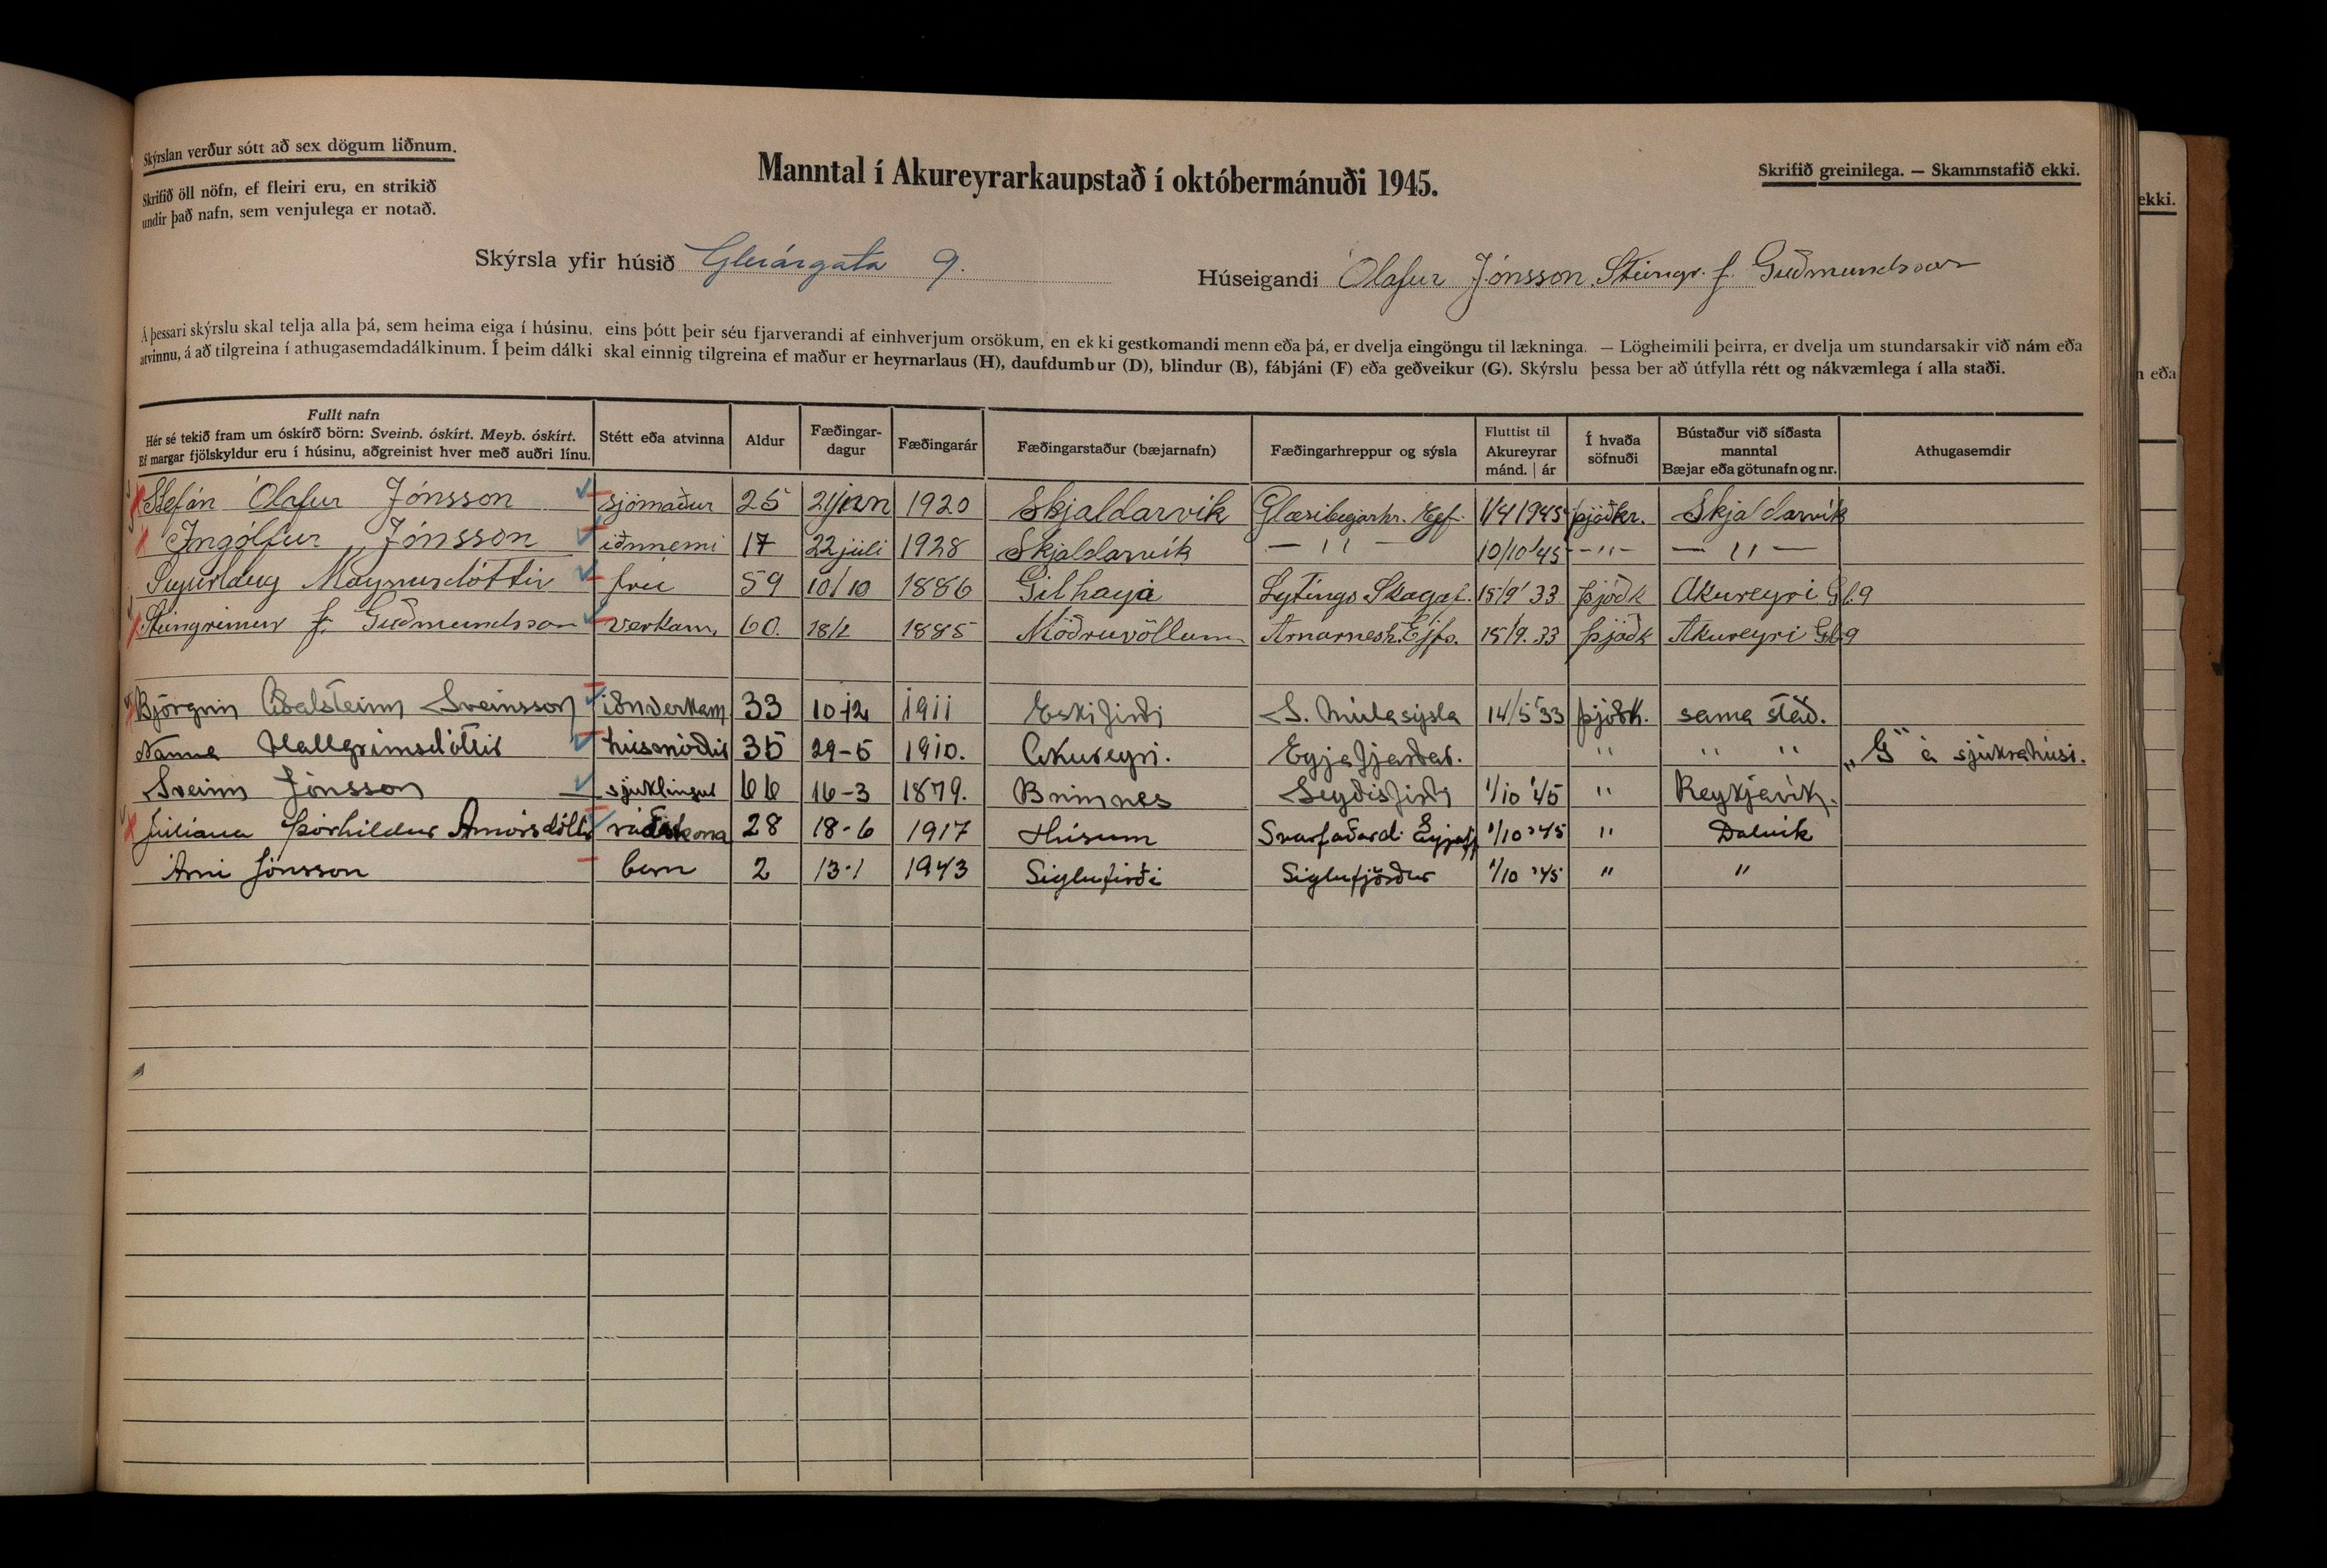 Skýrslan verður sótt að sex dögum liðnum.
Skrifið öll nöfn, ef fleiri eru, en strikið
undir það nafn, sem venjulega er notað.
Manntal í Akureyrarkaupstað í októbermánuði 1945.
Skrifið greinilega. — Skammstafið ekki.
ekki.
Skýrsla yfir húsið Glerárgata 9.
Húseigandi Ólafur Jónsson, Steingr. f. Guðmundsson
Á þessari skýrslu skal telja alla þá, sem heima eiga í húsinu, eins þótt þeir séu fjarverandi af einhverjum orsökum, en ekki gestkomandi menn eða þá, er dvelja eingöngu til lækninga. — Lögheimili þeirra, er dvelja um stundarsakir við nám eða
atvinnu, á að tilgreina í athugasemdadálkinum. Í þeim dálki skal einnig tilgreina ef maður er heyrnarlaus (H), daufdumbur (D), blindur (B), fábjáni (F) eða geðveikur (G). Skýrslu þessa ber að útfylla rétt og nákvæmlega í alla staði.
n eða
Fullt nafn
Hér sé tekið fram um óskírð börn: Sveinb. óskírt. Meyb. óskírt.
Ef margar fjölskyldur eru í húsinu, aðgreinist hver með auðri línu.
Stétt eða atvinna
Aldur
Fæðingar-
dagur
Fæðingarár
Fæðingarstaður (bæjarnafn)
Fæðingarhreppur og sýsla
Fluttist til
Akureyrar
mánd. | ár
Í hvaða
söfnuði
Bústaður við síðasta
manntal
Bæjar eða götunafn og nr.
Athugasemdir
Stefán Ólafur Jónsson sjómaður 25 21 jan 1920 Skjaldarvík Glæsibæjarhr. Eyf. 1/4 1945 þjóðkr. Skjaldarvík
Ingólfur Jónsson iðnnemi 17 22 júlí 1928 Skjaldarvík — " — 10/10 '45 — " — — " —
Sigurlaug Magnúsdóttir frú 59 10/10 1886 Gilhaga Lytings Skagaf. 15/9 33 þjóðk Akureyri Gl. 9
Steingrimur f. Guðmundsson verkam. 60. 18/2 1885 Möðruvöllum Arnarnesh. Eyfs. 15/9. 33 þjóðk Akureyri Gl. 9
Björgvin Aðalsteinn Sveinsson iðnverkam 33 10-12 1911 Eskifirði S. Múlasýsla 14/5 '33 þjóðk. sama stað.
Nanna Hallgrímsdóttir húsmóðir 35 29-5 1910. Akureyri. Eyjafjarðar. " " " „G" á sjúkrahúsi.
Sveinn Jónsson sjúklingur 66 16-3 1879. Brimnes Seyðisfirði 1/10 '45 " Reykjavík.
Júlíana Þórhildur Arnórsdóttir ráðskona 28 18-6 1917 Húsum Svarfaðard. Eyjafj 1/10 '45 " Dalvík
Árni Jónsson barn 2 13-1 1943 Siglufirði Siglufjörður 1/10 '45 " "